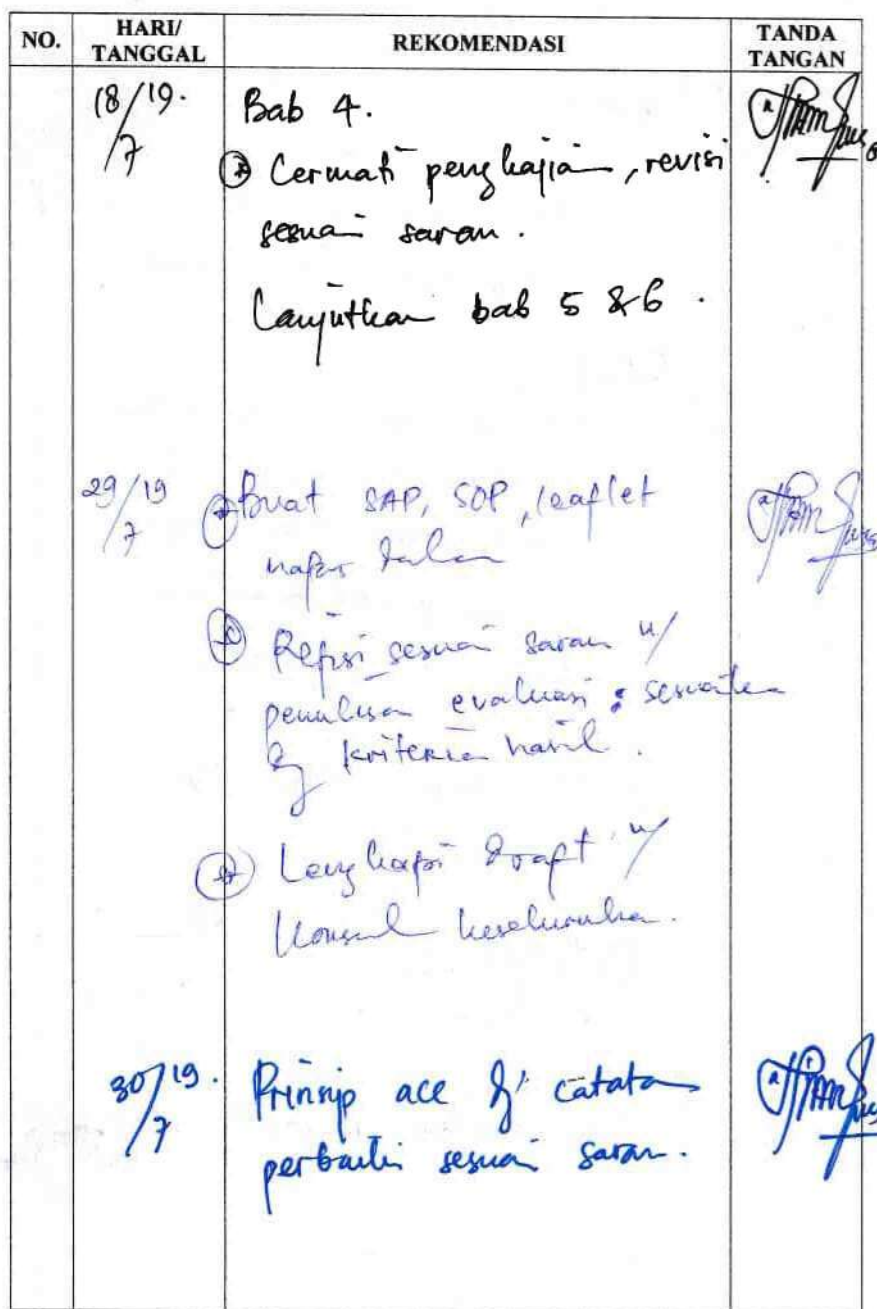 NO.
HARI/
TANGGAL
REKOMENDASI
TANDA
TANGAN
18/19.
7
Bab 4.
Cermati pengkajian, revisi
sesuai saran.
Lanjutkan bab 5 & 6.
29/19
7
Buat SAP, SOP, leaflet
nafas dalam
Refisi sesuai saran u/
penulisan evaluasi : sesuaikan
dg kriteria hasil.
Lengkapi draft u/
Konsul keseluruhan.
30/19.
7
Prinsip acc dg catatan
perbaiki sesuai saran.